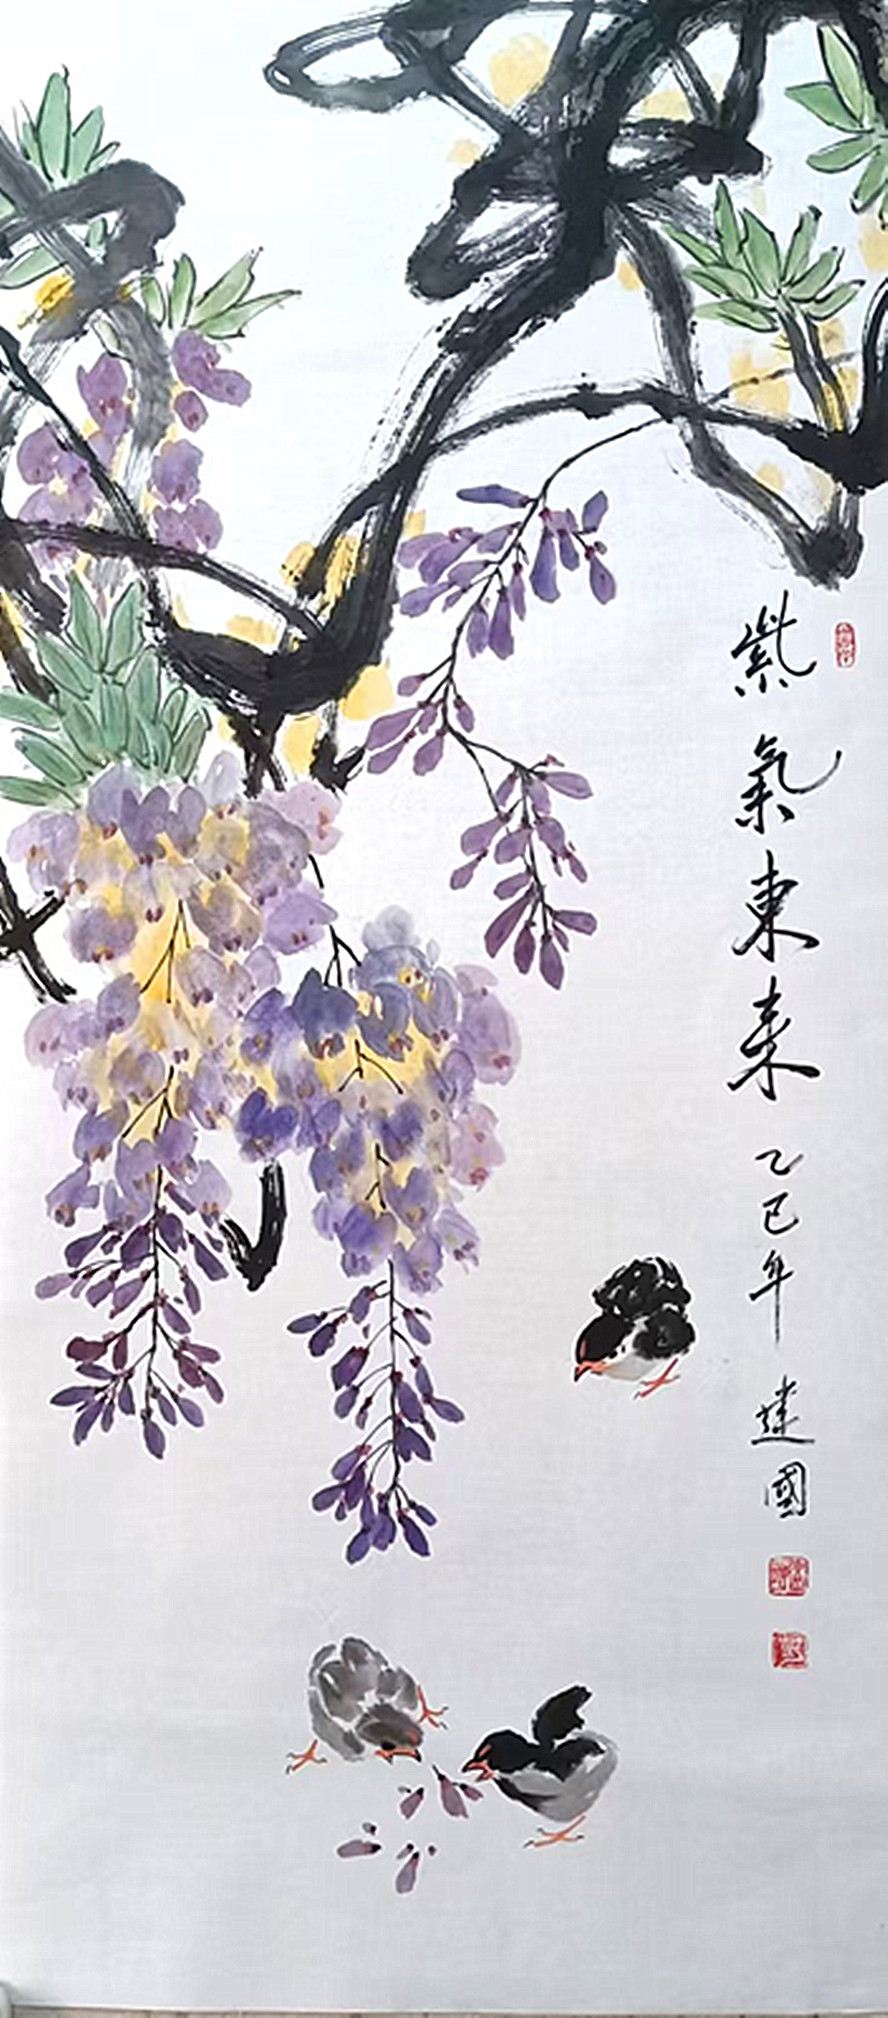 紫氣東来乙巳年建國